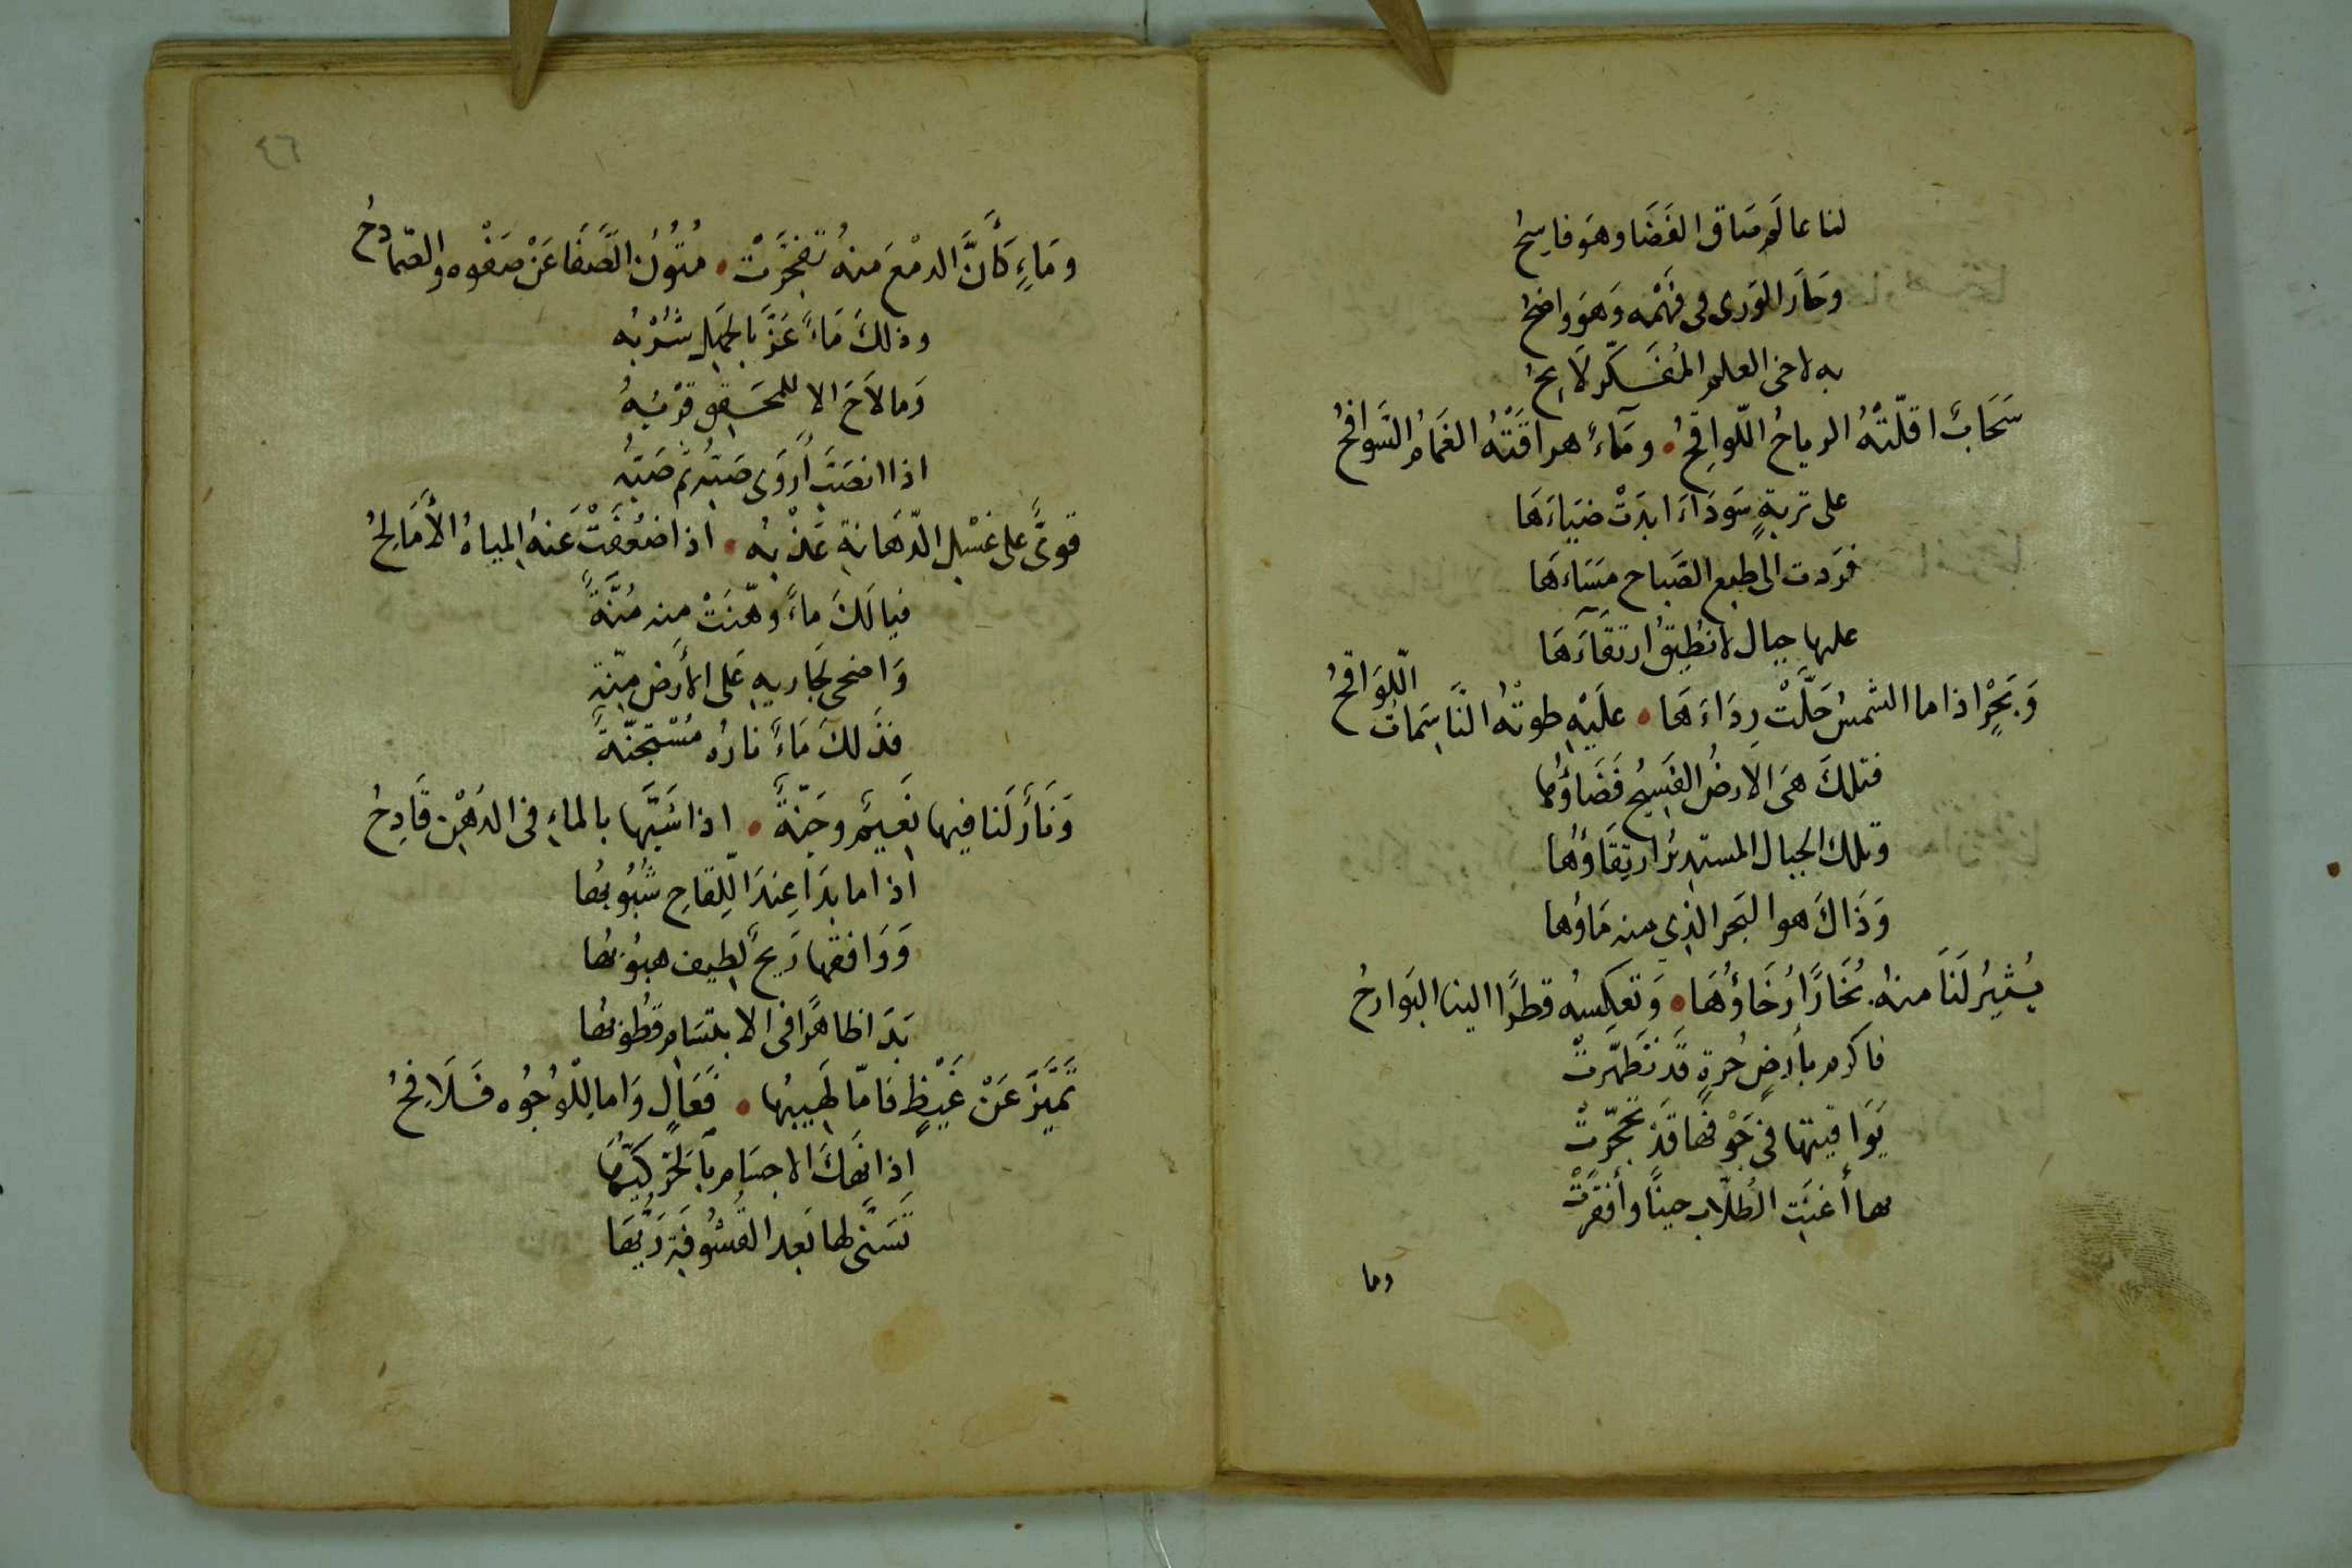 لنا عالم ضاق الفَضَا وهوَ فاسِحُ
وحَارَ الوَرى فى فَهْمه وَهوَ واضحُ
به لاخى العلم المُفَكّر لَايِحُ
سَحَابٌ اقلّتْهُ الرياحُ اللّواقِحُ • ومَآءٌ هراقَتْهُ الغَمَامُ السَّوافِحُ
على تربةٍ سَودَاءَ ابدَتْ ضيَاءَهَا
فرَدت الى طبع الصَباح مسَاءهَا
عليها جبال لا نُطيقُ ارتقَاءَهَا
وَبَحْرٍ اذا ما الشمسُ حَلَّتْ رِدَاءَهَا • علَيْهِ طوتْهُ النَاسِمَاتُ اللّوَاقحُ
فتلكَ هىَ الارضُ الفَسِيحُ فَضَاؤُها
وتلك الجبال المستديرُ ارتِقَاؤُها
وَذَاكَ هو البَحر الذِي منه مَاؤها
يُثيِرُ لَنَا منهُ بُخَارًا رُخَاؤُهَا • وَتعكِسهُ قطرًا الينا البَوارحُ
فاكرم بأرضٍ حُرةٍ قَد تَطهّرتْ
يَوَاقيتها فى جَوْفها قَدْ تحجّرتْ
بها أغنَتِ الطُلّاب حينًا وأفقرَتْ
وما
٤٦
ومَاءٍ كَأَنَّ الدمْعَ منهُ تفَجَّرَتْ • مُتُونُ الصَّفَا عَنْ صَفْوه والصّمادحُ
وذلكَ مَاءٌ عَزَّ بالجَهلِ شُرْبُه
وَما لاَحَ الا للمحَقِقِ قرْبُهُ
اذا انصَبَّ أَروَى صَبّه ثمَّ صَبّه
قوىٌّ على غَسْلِ الدّهَانةِ عَذْبُه • اذا ضعُفَتْ عَنهُ المياهُ الأَمَالحُ
فيا لَكَ ماءً وهّنَتْ منه مُنَّةً
وَاضحى لجَاريهِ عَلى الأرضِ مِنّة
فذَلكَ مَاءٌ نارُه مُسْتَجنّةٌ
وَنَارٌ لَنا فيها نَعِيمٌ وجَنّةٌ • اذا شَبَّها بالماءِ فى الدَهْنِ قَادِحُ
اذا ما بدَا عِندَ اللّقاحِ شُبُوبُها
وَوَافقها رَيحٌ لطِيف هبُوبُها
بَدَا ظاهرًا فى الابتسَام قطُوبُها
تَمَيَّزَ عَنْ غَيْظٍ فامّا لَهِيبُها • فَعَالٍ وَاما للوُجُوه فَلَافِحُ
اذا نَهكَ الاجسَام بالحَرّ كَيُّها
تَسَنَّى لها بَعد القُشُوفَةِ رَيُّها